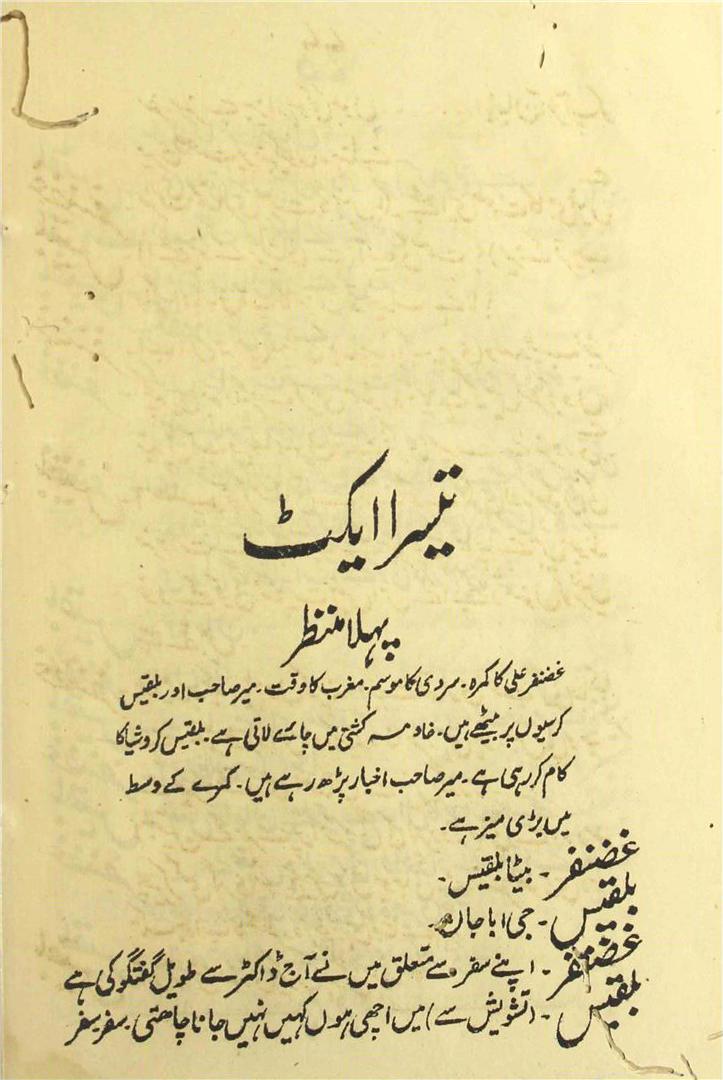 تیسرا ایکٹ
پہلا منظر
غضنفر علی کا کمرہ۔ سردی کا موسم۔ مغرب کا وقت۔ میر صاحب اور بلقیس
کرسیوں پر بیٹھے ہیں۔ خادمہ کشتی میں چائے لاتی ہے۔ بلقیس کروشیا کا
کام کر رہی ہے۔ میر صاحب اخبار پڑھ رہے ہیں۔ کمرے کے وسط
میں بڑی میز ہے۔
غضنفر۔ بیٹا بلقیس۔
بلقیس۔ جی ابا جان۔
غضنفر۔ اپنے سفر سے متعلق میں نے آج ڈاکٹر سے طویل گفتگو کی ہے
بلقیس۔ (تشویش سے) میں اچھی ہوں کہیں نہیں جانا چاہتی۔ سفر سفر